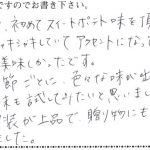 ですのでお書き下さい。
初めてスイートポテト味を頂
シャキシャキしていてアクセントになって
美味しかったです。
節ごとに、色々な味が出
味も試してみたいと思いまし
装が上品で、贈り物にも
した。